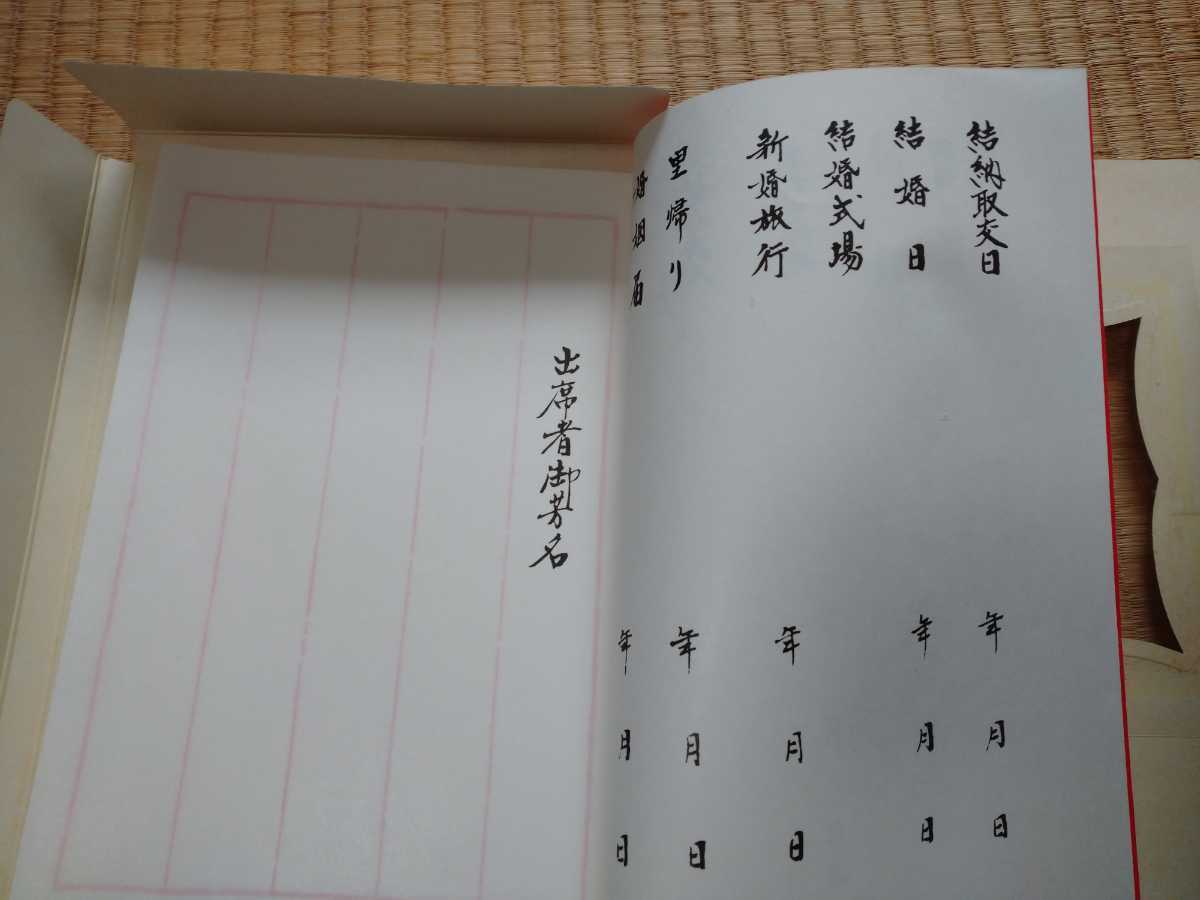 結納取交日　年　月　日
結婚日　年　月　日
結婚式場
新婚旅行　年　月　日
里帰り　年　月　日
婚姻　年　月　日
出席者御芳名